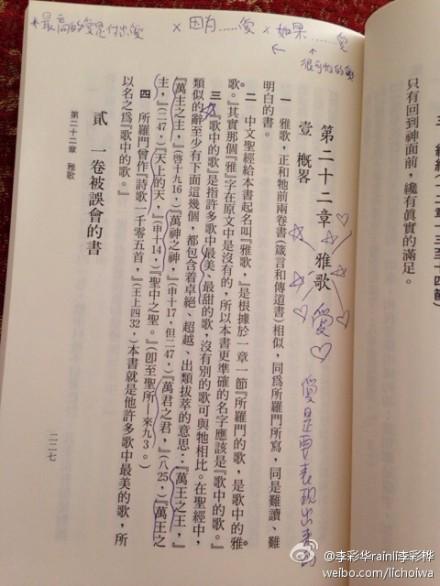 *最高的愛是付出愛
x 因为……愛
x 如果……愛
只有回到神面前,纔有眞實的滿足。
第二十二章 雅歌
愛
愛是要表現出來的
壹 概畧
一 雅歌,正和牠前兩卷書(箴言和傳道書)相似,同爲所羅門所寫,同是難讀、難
明白的書。
二 中文聖經給本書起名叫『雅歌』,是根據一章一節『所羅門的歌,是歌中的雅
歌。』其實那個『雅』字在原文中是沒有的,所以本書更準確的名字應該是『歌中的歌。』
三 『歌中的歌』是指許多歌中最美、最甜的歌,沒有別的歌可與牠相比。在聖經中,
類似的辭至少有下面這幾個,都包含着卓絕、超越、出類拔萃的意思:『萬王之王,』
『萬主之主,』(啓十九16,)『萬神之神,』(申十17,但二47,)『萬君之君,』(八25,)『萬王之
主,』(二47,)『天上的天,』(申十14,)『聖中之聖。』(卽至聖所—來九3。)
四 所羅門曾作『詩歌一千零五首,』(王上四32,)本書就是他許多歌中最美的歌,所
以名之爲『歌中的歌。』
貳 一卷被誤會的書
第二十二章 雅歌
二二七
@李彩华rainli李彩桦
weibo.com/lichoiwa